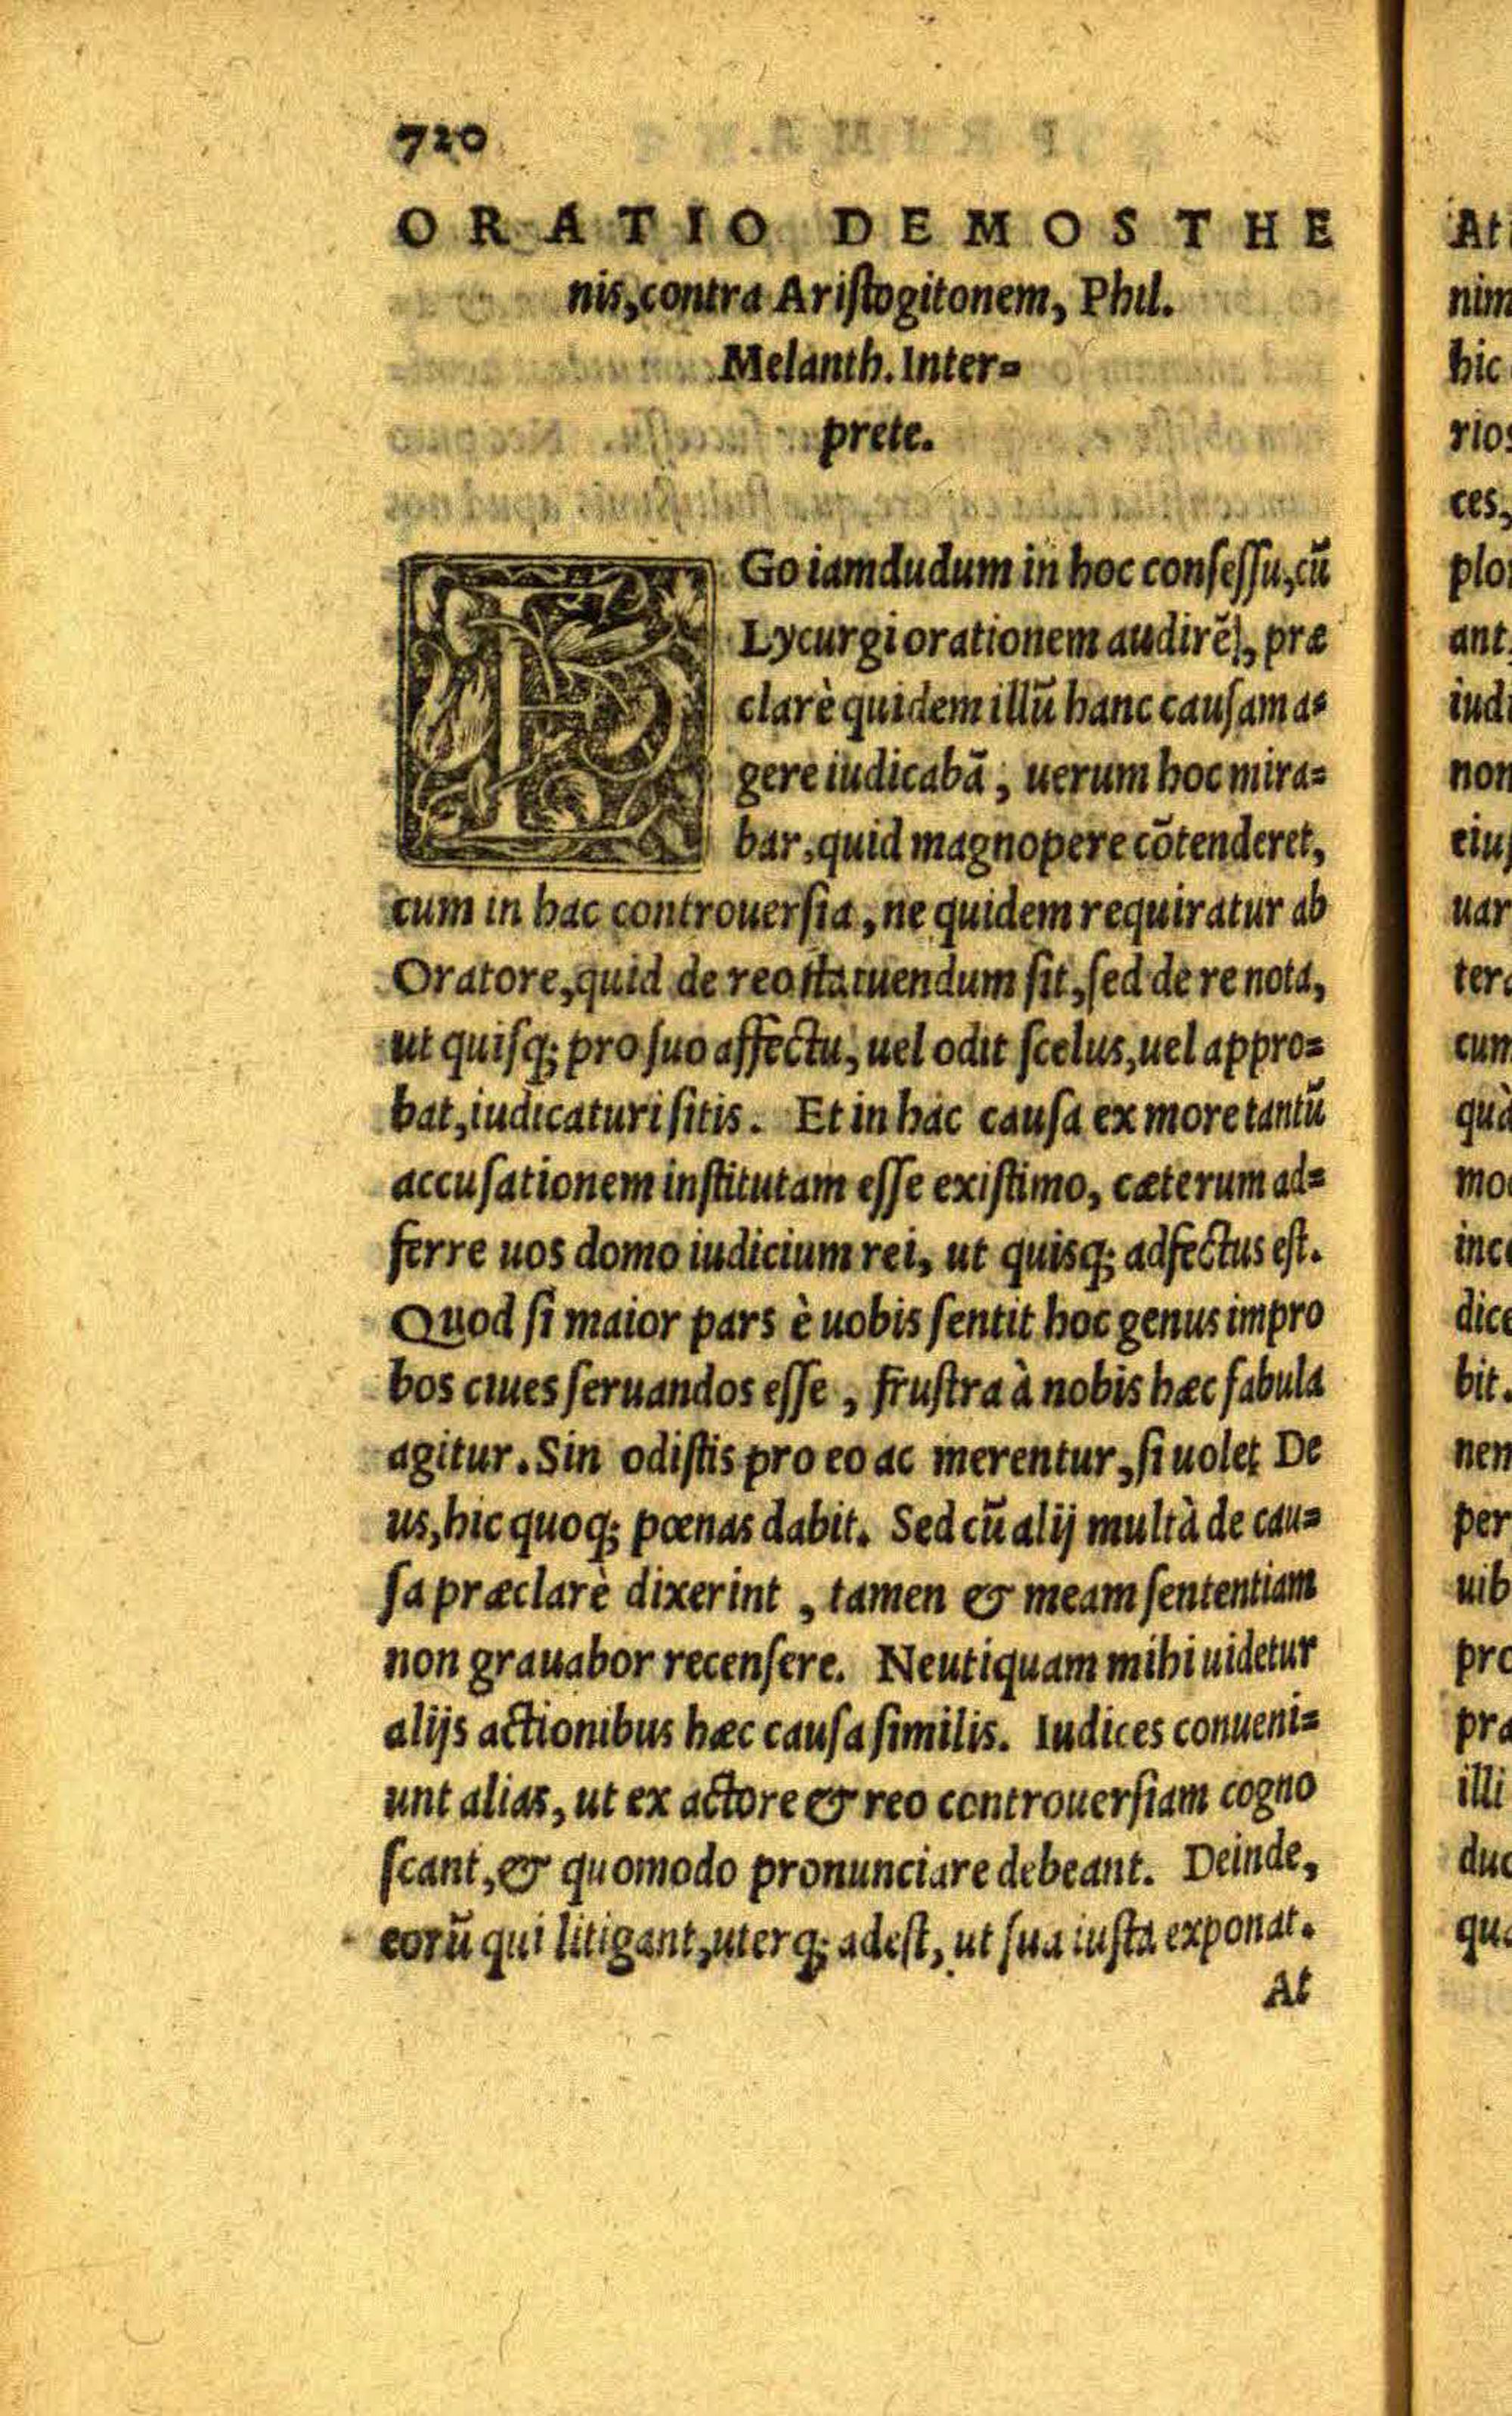 720
ORATIO DEMOSTHE
nis, contra Aristogitonem, Phil.
Melanth. Inter=
prete.
EGo iamdudum in hoc conseſſu, cũ
Lycurgi orationem audirẽ, præ
clarè quidem illũ hanc cauſam a=
gere iudicabã, uerum hoc mira=
bar, quid magnopere cõtenderet,
cum in hac controuerſia, ne quidem requiratur ab
Oratore, quid de reo ſtatuendum ſit, ſed de re nota,
ut quiſq; pro ſuo affectu, uel odit ſcelus, uel appro=
bat, iudicaturi ſitis. Et in hac cauſa ex more tantũ
accuſationem inſtitutam eſſe exiſtimo, cæterum ad=
ferre uos domo iudicium rei, ut quisq; adfectus eſt.
Quod ſi maior pars è uobis ſentit hoc genus impro
bos ciues ſeruandos eſſe, fruſtra à nobis hæc fabula
agitur. Sin odiſtis pro eo ac merentur, ſi uolet De
us, hic quoq; pœnas dabit. Sed cũ alij multà de cau=
ſa præclarè dixerint, tamen & meam ſententiam
non grauabor recenſere. Neutiquam mihi uidetur
alijs actionibus hæc cauſa ſimilis. Iudices conueni=
unt alias, ut ex actore & reo controuerſiam cogno
ſcant, & quomodo pronunciare debeant. Deinde,
eorũ qui litigant, uterq; adeſt, ut ſua iuſta exponat.
At
At
nim
hic
rios
ces,
plo
ant.
iud
non
eiuſ
uar
ter
cum
quà
mo
inc
dice
bit.
nem
per
uib
pro
præ
illi
duc
qu